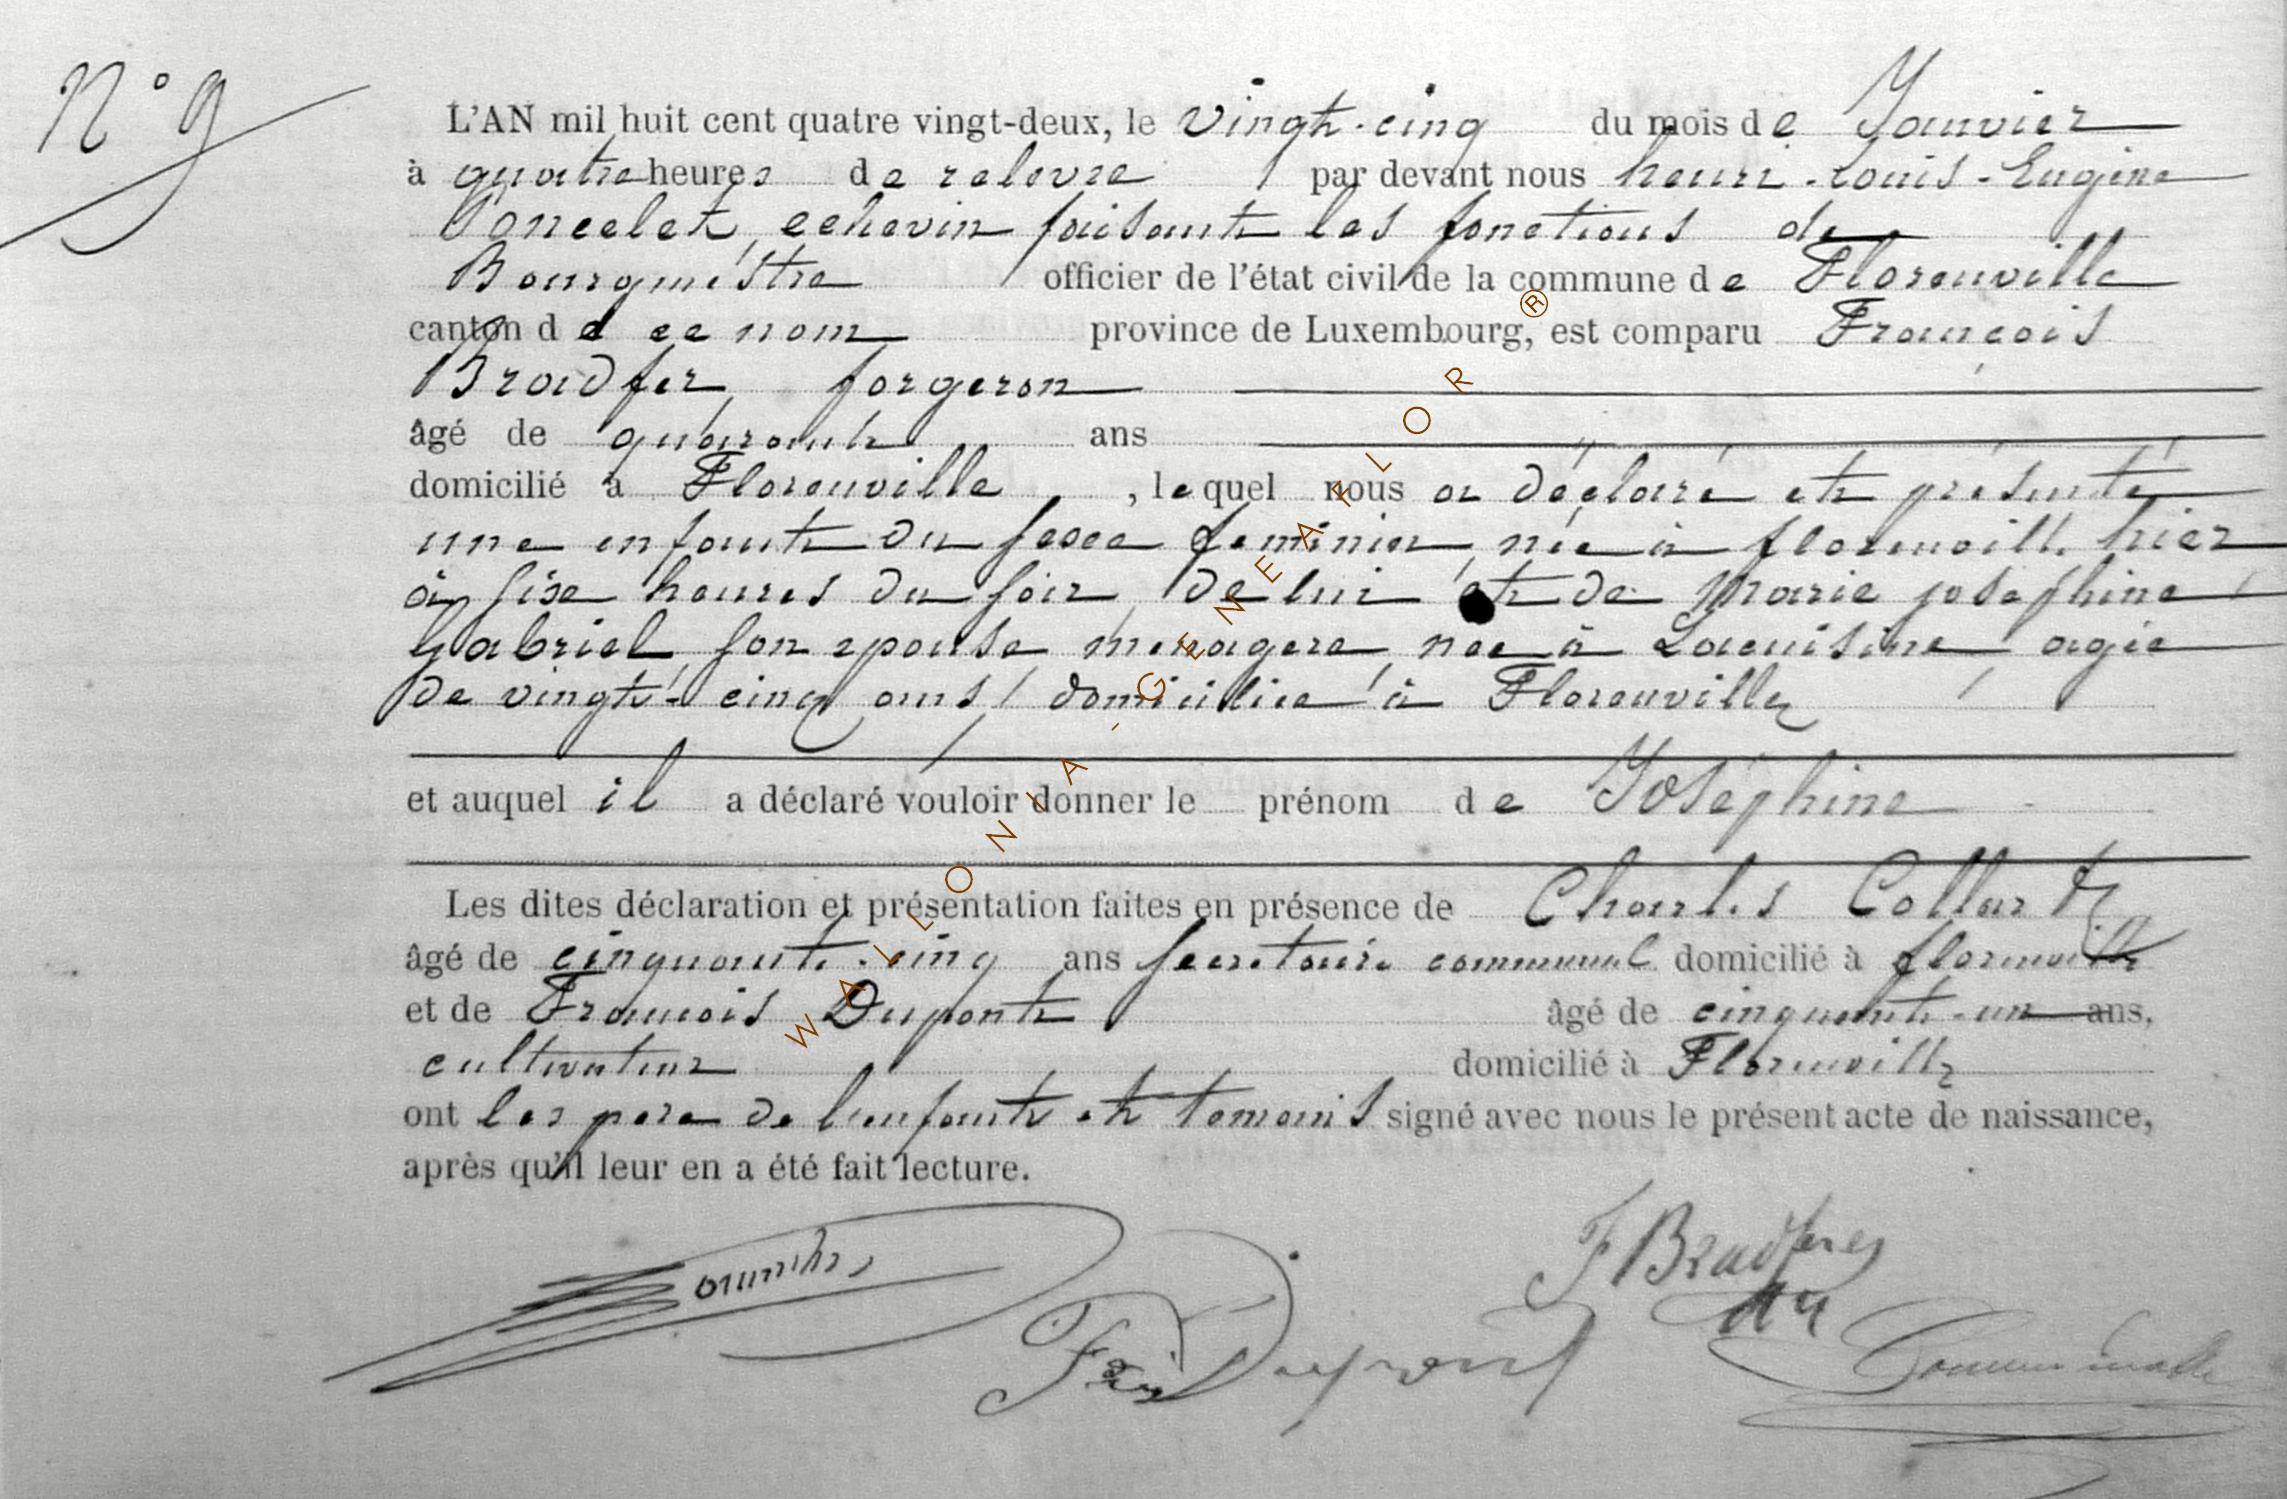 N° 9
L'AN mil huit cent quatre vingt-deux, le vingt-cinq du mois de Janvier
à quatre heures de relevée par devant nous henri-Louis-Eugène
Poncelet, echevin faisant les fonctions de
Bourgmestre officier de l'état civil de la commune de Florenville
canton de ce nom province de Luxembourg, est comparu François
Bradfer forgeron
âgé de quarante ans
domicilié à Florenville, lequel nous a déclaré et présenté
une enfant du sexe feminin née à florenville hier
à six heures du soir de lui et de Marie josephine
Gabriel son epouse ménagere nee à Lacuisine agée
de vingt-cinq ans domiciliée à Florenville
et auquel il a déclaré vouloir donner le prénom de Joséphine
Les dites déclaration et présentation faites en présence de Charles Collart
âgé de cinquante-cinq ans secretaire communal domicilié à florenville
et de François Dupont âgé de cinquante-un ans,
cultivateur domicilié à Florenville
ont les pere de l'enfant et temoins signé avec nous le présent acte de naissance,
après qu'il leur en a été fait lecture.
F Bradfer
Dupont
WALLONIA-GENEAFLOR®